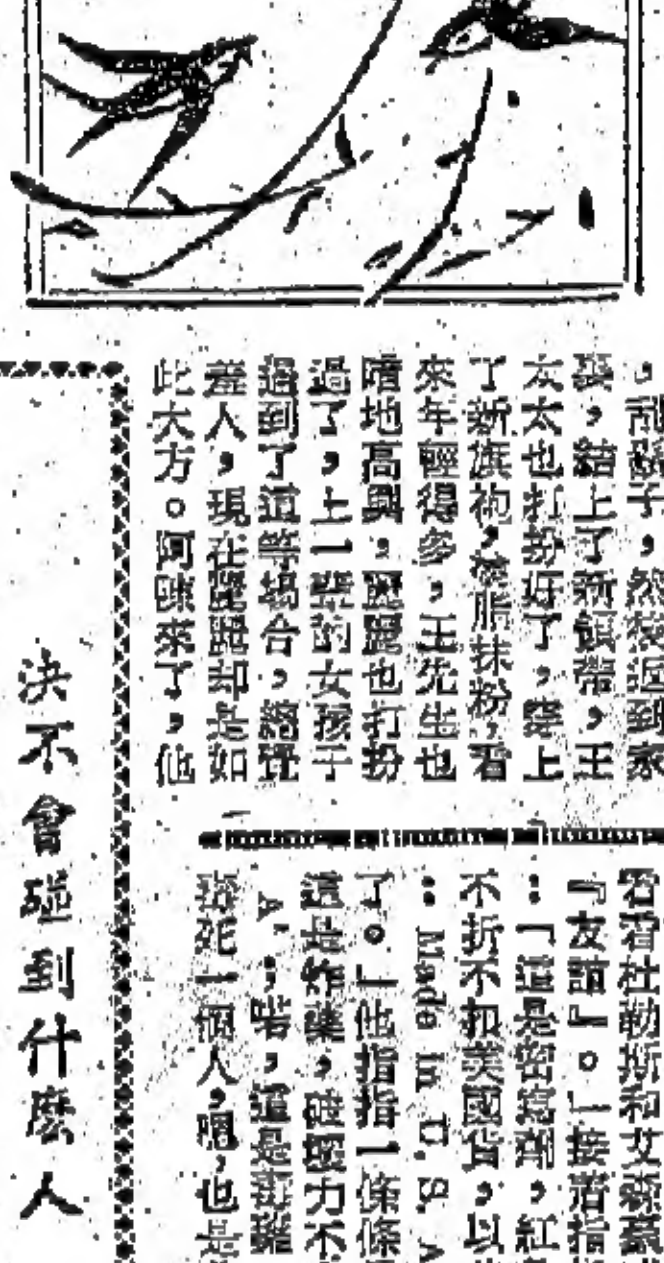 ，刮鬍子，然後返到家
裏，結上了新領帶，王
太太也打扮好了，穿上
了新旗袍，搽脂抹粉，看
來年輕得多，王先生也
暗地高興，麗麗也打扮
過了，上一輩的女孩子
遇到了這等場合，總覺
羞人，現在麗麗却是如
此大方。阿陳來了，他
看看杜勒斯和艾森豪
『友誼』。」接着指
：「這是密寫劑，紅
不折不扣美國貨，以
：Made in U. S. A
了。」他指指一條條
這是炸藥，破壞力不
A'；喏，這是毒藥
死一個人，嗯，也是
決不會碰到什麼人